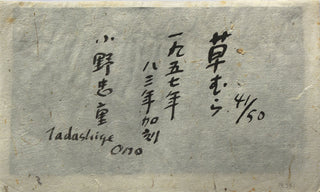 草むら
41/50
一九五七年
八三年加刻
小野忠重
Tadashige
Ono